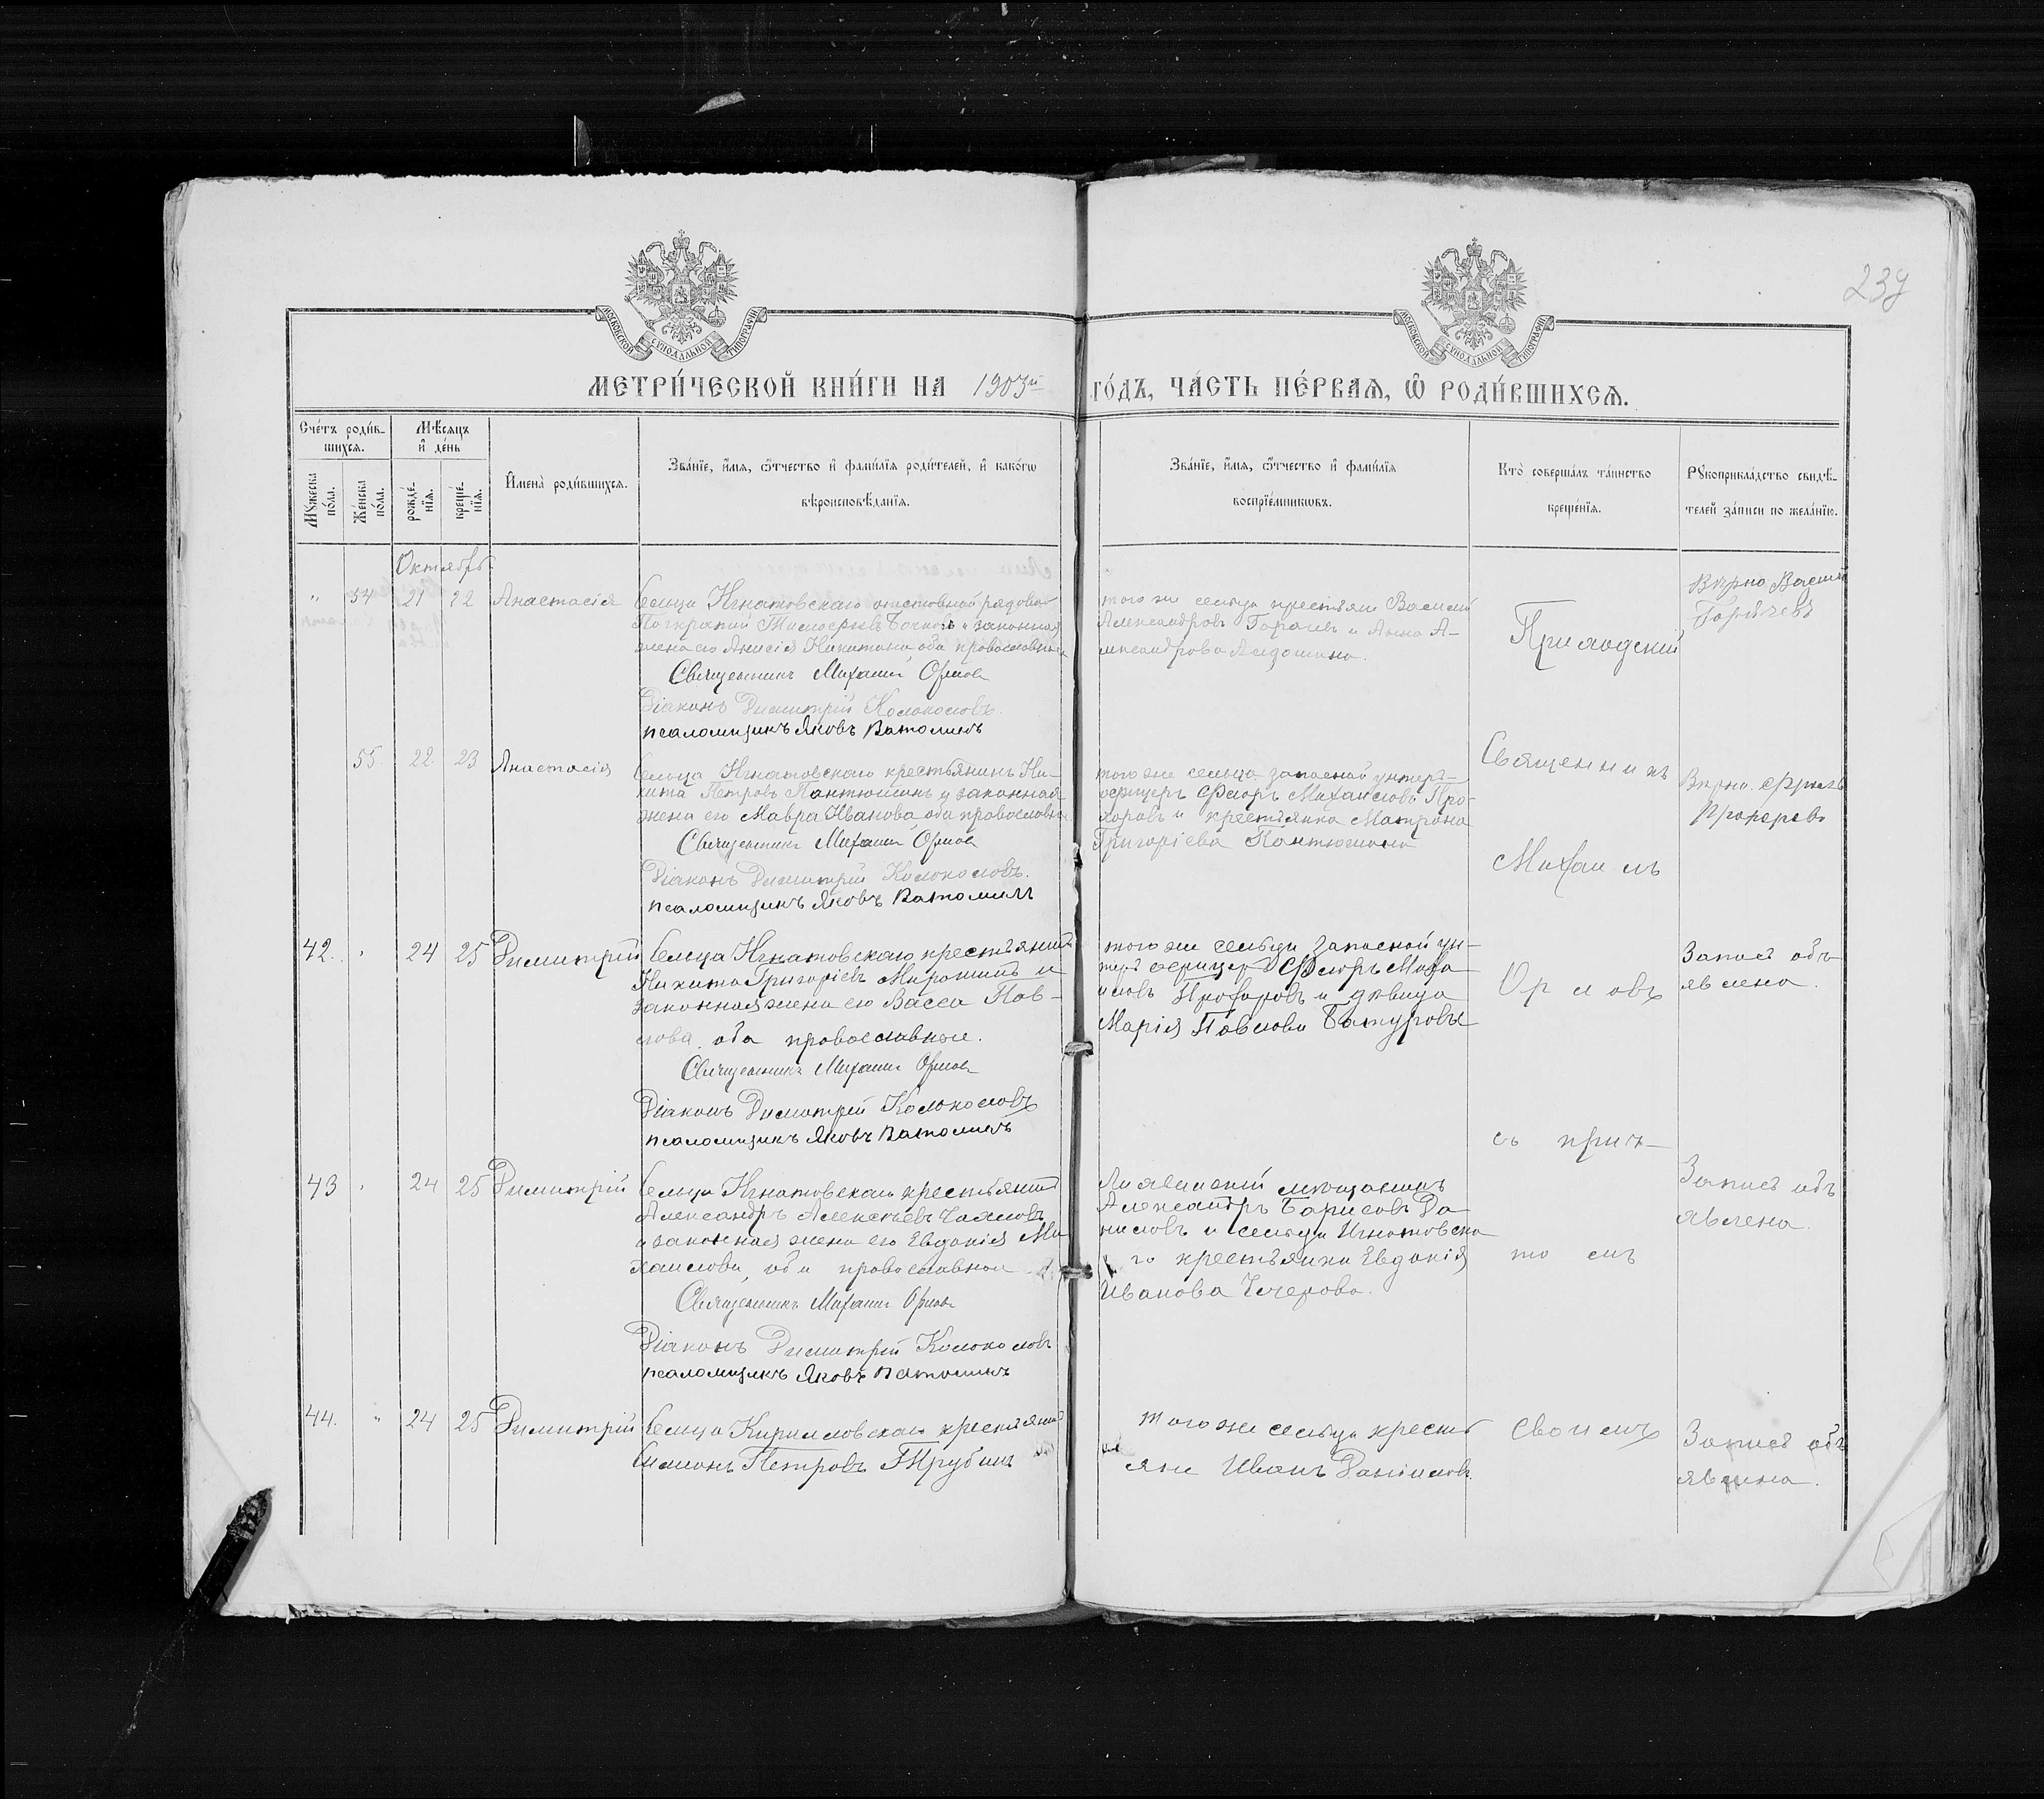 239
МОСКОВСКОЙ СУНОДАЛЬНОЙ ТИПОГРАФІИ
МОСКОВСКОЙ СУНОДАЛЬНОЙ ТИПОГРАФІИ
МЕТРИ́ЧЕСКОЙ КНИ́ГИ НА 1903й ГО́ДЪ, ЧА́СТЬ ПЕ́РВАЯ, Ѡ РОДИ́ВШИХСѦ.
Сче́тъ роди́в-
шихсѧ.
Мꙋ́жеска по́ла.
Же́нска по́ла.
Мѣ́сѧцъ
и҆ де́нь
рожде́-нїѧ.
креще́-нїѧ.
И҆мена̀ роди́вшихсѧ.
Зва́нїе, и҆́мѧ, ѻ҆́тчество и҆ фами́лїѧ роди́телей, и҆ како́гѡ
вѣроисповѣ́данїѧ.
Зва́нїе, и҆́мѧ, ѻ҆́тчество и҆ фами́лїѧ
воспрїе́мникѡвъ.
Кто̀ соверша́лъ та́инство
креще́нїѧ.
Рꙋкоприкла́дство свидѣ́-
телей за́писи по жела́нїю.
Октябрь
" 54 21 22 Анастасія
Сельца Игнатовскаго отставной рядовой
законная
жена его Анисія Никитина, оба православные
Священникъ Михаилъ Орловъ
Діаконъ Димитрій Колоколовъ.
псаломщикъ Яковъ Ватолинъ
того же сельца крестьяне Василій
Александровъ Горячевъ и Анна А-
лександрова
Приходскій
Вѣрно Василій
Горячевъ
55. 22. 23 Анастасія
Сельца Игнатовскаго крестьянинъ Ни-
кита Петровъ Пантюшинъ и законная
жена его Мавра Иванова, оба православные
Священникъ Михаилъ Орловъ
Діаконъ Димитрій Колоколовъ.
псаломщикъ Яковъ Ватолинъ
того же сельца запасной унтеръ-
офицеръ Флоръ Михаиловъ Про-
хоровъ и крестьянка Матрона
Григоріева Пантюшина
Священникъ
Михаилъ
Вѣрно Флоръ
Прохоровъ
42. " 24 25 Димитрій
Сельца Игнатовскаго крестьянинъ
Никита Григоріевъ Мирошинъ и
законная жена его Васса Пав-
лова, оба православные.
Священникъ Михаилъ Орловъ
Діаконъ Димитрій Колоколовъ
псаломщикъ Яковъ Ватолинъ
того же сельца запасной ун-
теръ офицеръ Флоръ Миха-
иловъ Прохоровъ и дѣвица
Марія Павлова
Орловъ
Запись объ-
явлена.
съ прич-
43 " 24 25 Димитрій
Сельца Игнатовскаго крестьянинъ
Александръ Алексѣевъ
и законная жена его Евдокія Ми-
хаилова, оба православные
Священникъ Михаилъ Орловъ
Діаконъ Димитрій Колоколовъ
псаломщикъ Яковъ Ватолинъ
мѣщанинъ
Александръ Борисовъ Да-
ниловъ и сельца Игнатовска-
го крестьянка Евдокія
Иванова
томъ
Запись объ-
явлена.
44. " 24 25 Димитрій
Сельца Кирилловскаго крестьянинъ
Симеонъ Петровъ Трубинъ
того же сельца кресть-
яне Иванъ Даніиловъ
своимъ
Запись объ-
явлена.